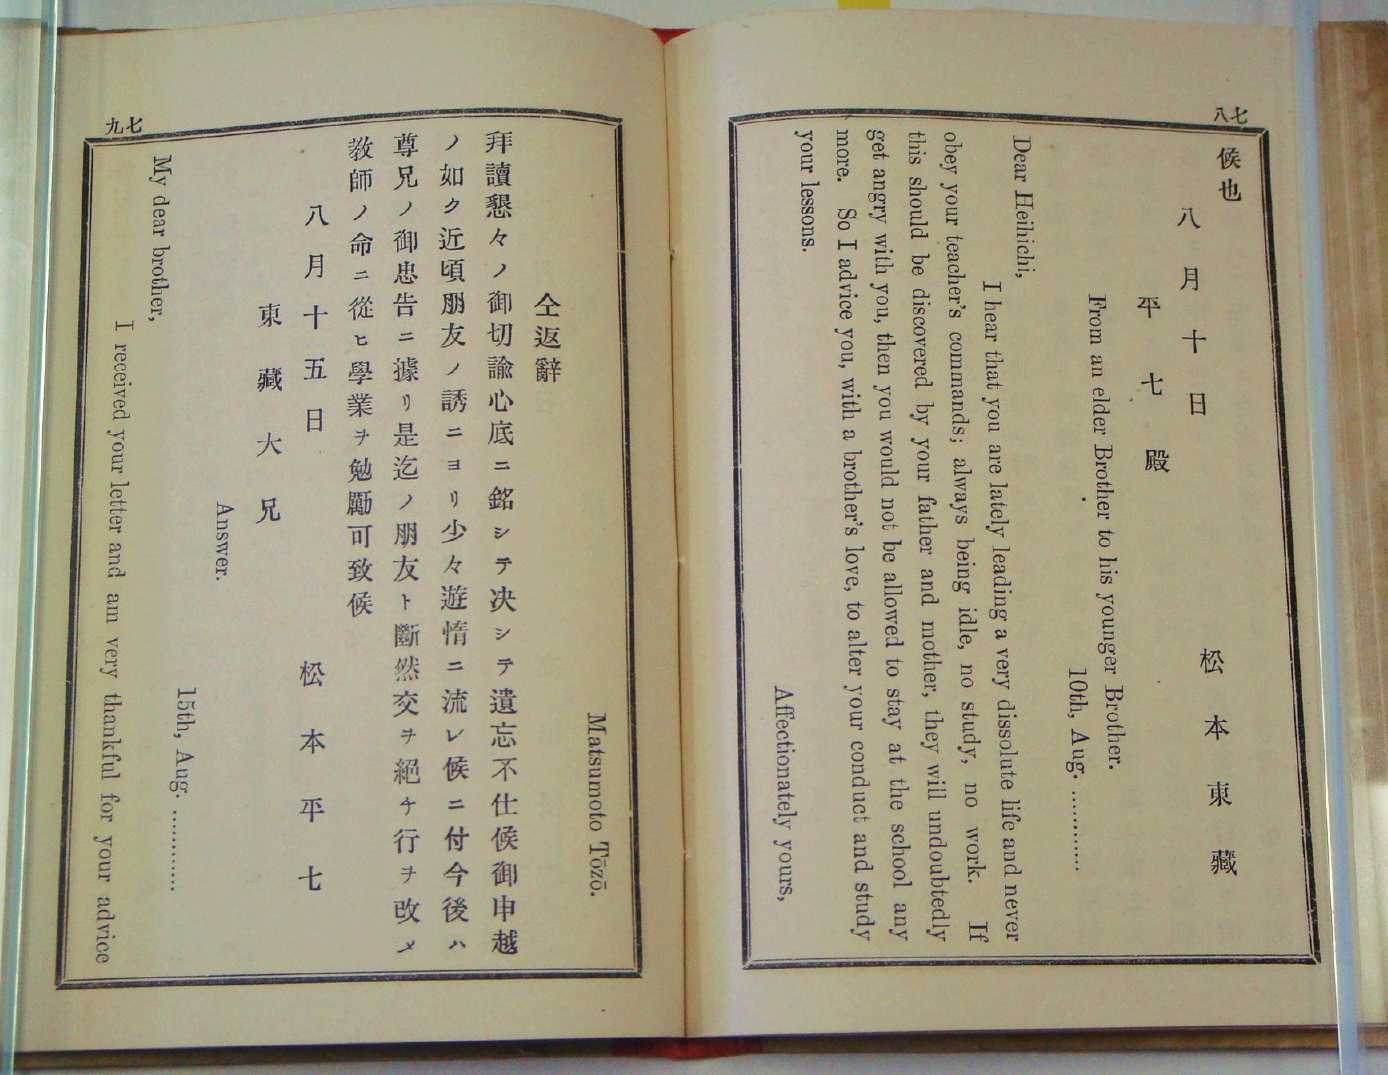 七八
候也
八月十日 松本東藏
平七殿
From an elder Brother to his younger Brother.
10th, Aug. ............
Dear Heihichi,
I hear that you are lately leading a very dissolute life and never
obey your teacher's commands; always being idle, no study, no work. If
this should be discovered by your father and mother, they will undoubtedly
get angry with you, then you would not be allowed to stay at the school any
more. So I advice you, with a brother's love, to alter your conduct and study
your lessons.
Affectionately yours,
七九
Matsumoto Tōzō.
仝返辭
拜讀懇々ノ御切諭心底ニ銘シテ决シテ遺忘不仕候御申越
ノ如ク近頃朋友ノ誘ニヨリ少々遊惰ニ流レ候ニ付今後ハ
尊兄ノ御忠告ニ據リ是迄ノ朋友ト斷然交ヲ絕チ行ヲ改メ
教師ノ命ニ從ヒ學業ヲ勉勵可致候
八月十五日 松本平七
東藏大兄
Answer.
15th, Aug. ............
My dear brother,
I received your letter and am very thankful for your advice